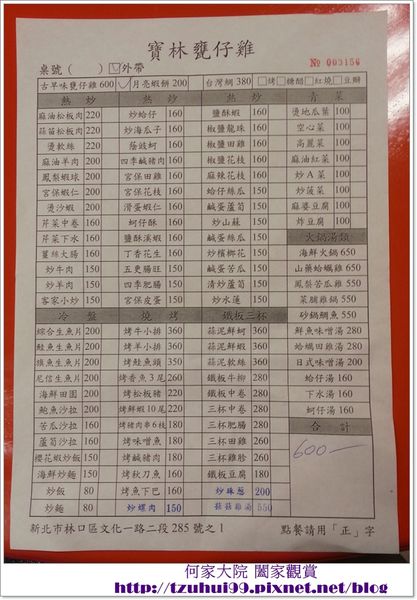 寶林甕仔雞
桌號(　　) ☑外帶 № 003156
古早味甕仔雞600 ☑月亮蝦餅200 台灣鯛380 □烤□糖醋□紅燒□豆瓣
熱炒 熱炒 青菜
麻油松板肉 220 炒蛤仔 160 鹽酥蝦 160 燙地瓜葉 100
蒜苗松板肉 220 炒海瓜子 160 椒鹽龍珠 160 空心菜 100
燙軟絲 220 蔭豉蚵 160 椒鹽田雞 160 高麗菜 100
麻油羊肉 200 四季鹹豬肉 160 椒鹽花枝 160 麻油紅菜 100
鳳梨蝦球 200 宮保田雞 160 麻辣花枝 160 炒A菜 100
宮保蝦仁 200 宮保花枝 160 蛤仔絲瓜 150 炒菠菜 100
燙沙蝦 200 滑蛋蝦仁 160 鹹蛋蘆筍 150 麻婆豆腐 100
芹菜中卷 160 蚵仔酥 160 炒山蘇 150 炸豆腐 100
芹菜下水 160 鹽酥溪蝦 160 鹹蛋絲瓜 150 火鍋湯類
薑絲大腸 160 丁香花生 160 炒檳榔花 150 海鮮火鍋 650
炒牛肉 150 五更腸旺 150 鹹蛋苦瓜 150 山藥蛤蠣雞 650
炒羊肉 150 四季肥腸 150 清炒蘆筍 150 鳳梨苦瓜雞 550
客家小炒 150 宮保皮蛋 150 炒水蓮 150 菜脯雞鍋 550
冷盤 燒烤 鐵板三杯 砂鍋鯛魚 550
綜合生魚片 200 烤牛小排 360 蒜泥鮮蚵 360 鮮魚味噌湯 280
鮭魚生魚片 200 烤羊小排 360 蒜泥鮮蝦 360 蛤蠣田雞湯 280
旗魚生魚片 200 烤鮭魚頭 350 蒜泥軟絲 360 日式味噌湯 200
尼信生魚片 200 烤香魚3尾 260 鐵板牛柳 280 蛤仔湯 160
海鮮田園 200 烤松板豬 220 鐵板中卷 280 下水湯 160
鮑魚沙拉 200 烤鮮蝦10尾 220 三杯中卷 280 蚵仔湯 160
苦瓜沙拉 160 烤豬肉串6枝 180 三杯肥腸 280 合計
蘆筍沙拉 160 烤味噌魚 180 三杯田雞 260 600—
櫻花蝦炒飯 150 烤鹹豬肉 160 三杯雞胗 260
海鮮炒麵 150 烤秋刀魚 160 鐵板豆腐 180
炒飯 80 烤魚下巴 160 炒珠蔥 200
炒麵 80 炒螺肉 150 菇菇雞湯 550
新北市林口區文化一路二段285號之1 點餐請用「正」字
何家大院 闔家觀賞
http://tzuhui99.pixnet.net/blog